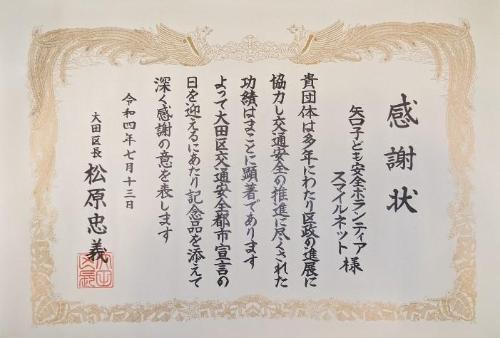 感謝状
矢口子ども安全ボランティア
スマイルネット 様
貴団体は多年にわたり区政の進展に
協力し交通安全の推進に尽くされた
功績はまことに顕著であります
よって大田区交通安全都市宣言の
日を迎えるにあたり記念品を添えて
深く感謝の意を表します
令和四年七月十三日
大田区長 松原忠義